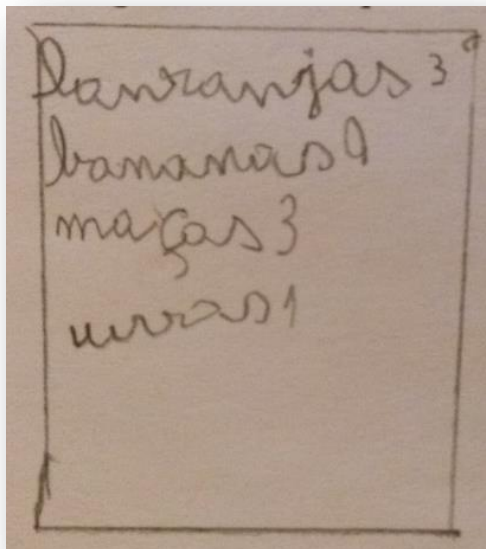 lanranjas 3
bananas 9
maças 3
uvas 1